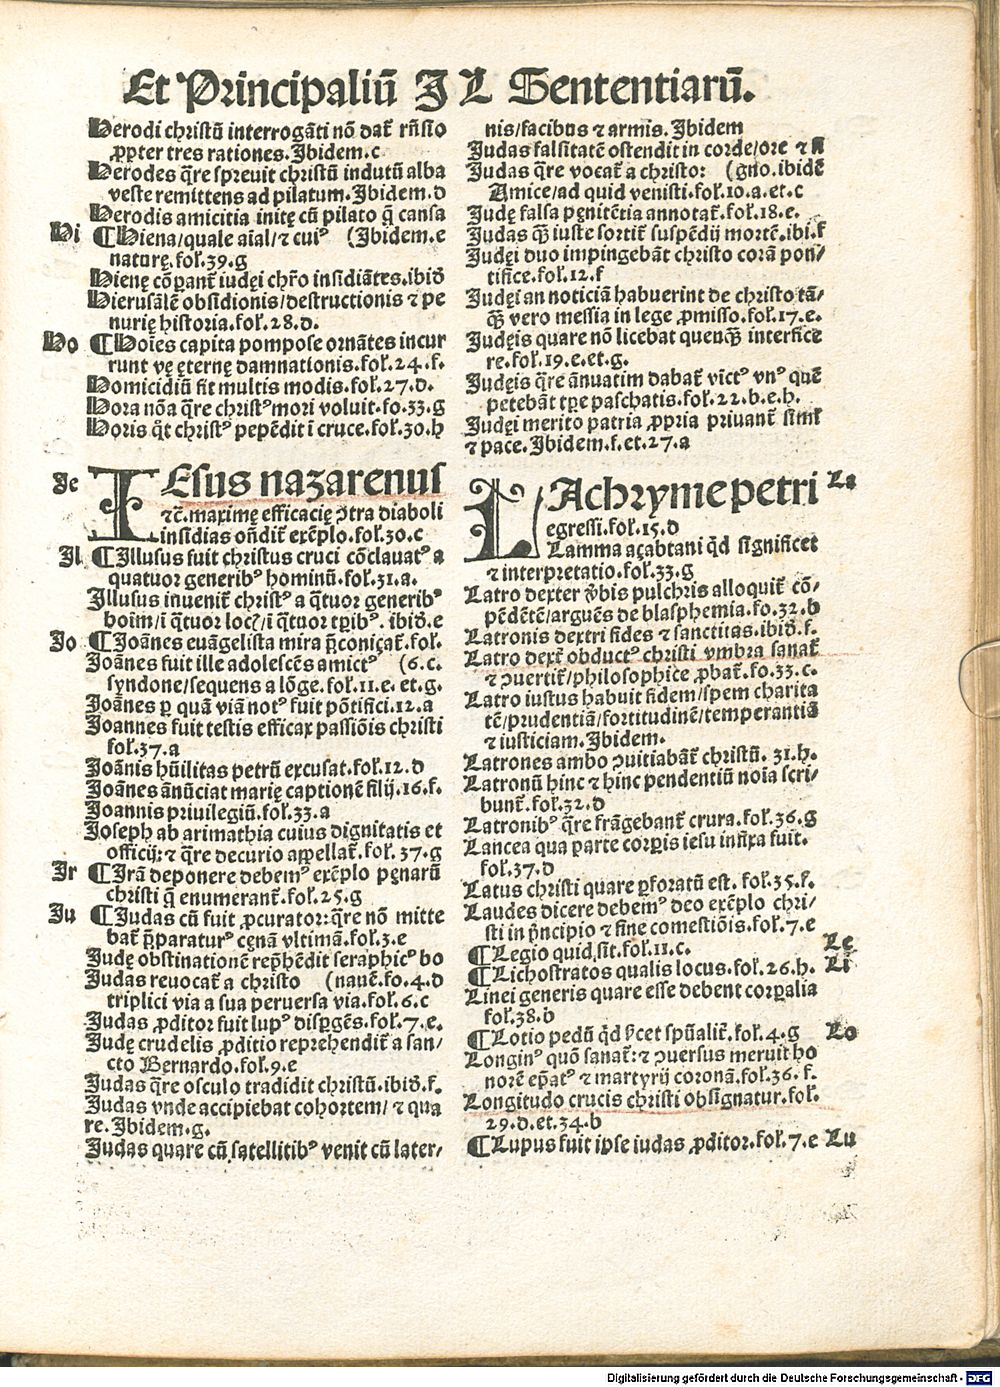 Et Principaliū I L Sententiarū.
Herodi christū interrogāti nō dat̄ rn̄sio
ꝓpter tres rationes. Ibidem.c
Herodes q̄re spreuit christū indutū alba
veste remittens ad pilatum. Ibidem.d
Herodis amicitia initę cū pilato q̄ causa
Hi ¶ Hiena/quale aīal/⁊ cuiꝰ (Ibidem.e
naturę.fol.39.g
Hienę cōꝑant̄ iudęi chr̄o insidiātes.ibid̄
Hierusalē obsidionis/destructionis ⁊ pe
nurię historia.fol.28.d.
Ho ¶ Hoīes capita pompose ornātes incur
runt vę eternę damnationis.fol.24.f.
Homicidiū fit multis modis.fol.27.d.
Hora nōa q̄re christꝰ mori voluit.fo.33.g
Horis q̄t christꝰ pepēdit ī cruce.fol.30.h
Je IEsus nazarenus
⁊c̄.maximę efficacię ꝯtra diaboli
insidias on̄dit̄ exēplo.fol.30.c
Il ¶ Illusus fuit christus cruci cōclauatꝰ a
quatuor generibꝰ hominū.fol.31.a.
Illusus inuenit̄ christꝰ a q̄tuor generibꝰ
hoīm/ī q̄tuor locꝭ/ī q̄tuor tꝑibꝰ. ibid̄.e
Jo ¶ Joānes euāgelista mira p̄conicat̄.fol.
Joānes fuit ille adolescēs amictꝰ (6.c.
syndone/sequens a lōge.fol.11.e. et.g.
Joānes ꝑ quā viā notꝰ fuit pōtifici.12.a
Joannes fuit testis efficax passiōis christi
fol.37.a
Joānis hūilitas petrū excusat.fol.12.d
Joānes ānūciat marię captionē filij.16.f.
Joannis priuilegiū.fol.33.a
Joseph ab arimathia cuius dignitatis et
officij:⁊ q̄re decurio appellat̄.fol.37.g
Ir ¶ Irā deponere debemꝰ exēplo pęnarū
christi q̄ enumerant̄.fol.25.g
Iu ¶ Judas cū fuit ꝓcurator:q̄re nō mitte
bat̄ p̄paraturꝰ cęnā vltimā.fol.3.e
Judę obstinationē rep̄hēdit seraphicꝰ bo
Judas reuocat̄ a christo (nauē.fo.4.d
triplici via a sua peruersa via.fol.6.c
Judas ꝓditor fuit lupꝰ disꝑgēs.fol.7.e.
Judę crudelis ꝓditio reprehendit̄ a san/
cto Bernardo.fol.9.e
Judas q̄re osculo tradidit christū.ibid̄.f.
Judas vnde accipiebat cohortem/ ⁊ qua
re. Ibidem.g.
Judas quare cū satellitibꝰ venit cū later/
nis/facibus ⁊ armis. Ibidem
Judas falsitatē ostendit in corde/ore ⁊ si
Judas q̄re vocat̄ a christo: (gno.ibidē
Amice/ad quid venisti.fol.10.a.et.c
Judę falsa pęnitētia annotat̄.fol.18.e.
Judas q̄ꝫ iuste sortit̄ suspēdij mortē.ibi.f
Judęi duo impingebāt christo corā pon/
tifice.fol.12.f
Judęi an noticiā habuerint de christo tā/
q̄ꝫ vero messia in lege ꝓmisso.fol.17.e.
Judęis quare nō licebat quenq̄ꝫ interfice
re.fol.19.e.et.g.
Judęis q̄re ānuatim dabat̄ victꝰ vnꝰ quē
petebāt tꝑe paschatis.fol.22.b.e.h.
Judęi merito patria ꝓpria priuant̄ siml̄
⁊ pace. Ibidem.f.et.27.a
LAchryme petri La
egressi.fol.15.d
Lamma açabtani q̄d significet
⁊ interpretatio.fol.33.g
Latro dexter v̄bis pulchris alloquit̄ cō/
pēdētē/arguēs de blasphemia.fo.32.b
Latronis dextri fides ⁊ sanctitas.ibid̄.f.
Latro dext̄ obductꝰ christi vmbra sanat̄
⁊ ꝯuertit̄/philosophice ꝓbat̄.fo.33.c.
Latro iustus habuit fidem/spem charita
tē/prudentiā/fortitudinē/temperantiā
⁊ iusticiam. Ibidem.
Latrones ambo ꝯuitiabāt̄ christū. 31.h.
Latronū hinc ⁊ hinc pendentiū noīa scri/
bunt̄.fol.32.d
Latronibꝰ q̄re frāgebant̄ crura.fo.36.g
Lancea qua parte corꝑis iesu infixa fuit.
fol.37.d
Latus christi quare ꝑforatū est. fol.35.f.
Laudes dicere debemꝰ deo exēplo chri/
sti in p̄ncipio ⁊ fine comestiōis.fol.7.e
¶ Legio quid sit.fol.11.c. Le
¶ Lichostratos qualis locus.fol.26.h. Li
Linei generis quare esse debent corꝑalia
fol.38.b
¶ Lotio pedū q̄d d̄cet spūalit̄.fol.4.g Lo
Longinꝰ quō sanat̄:⁊ ꝯuersus meruit ho
norē ep̄atꝰ ⁊ martyrij coronā.fol.36.f.
Longitudo crucis christi obsignatur.fol.
29.d.et.34.b
¶ Lupus fuit ipse iudas ꝓditor.fol.7.e Lu
Digitalisierung gefördert durch die Deutsche Forschungsgemeinschaft - DFG